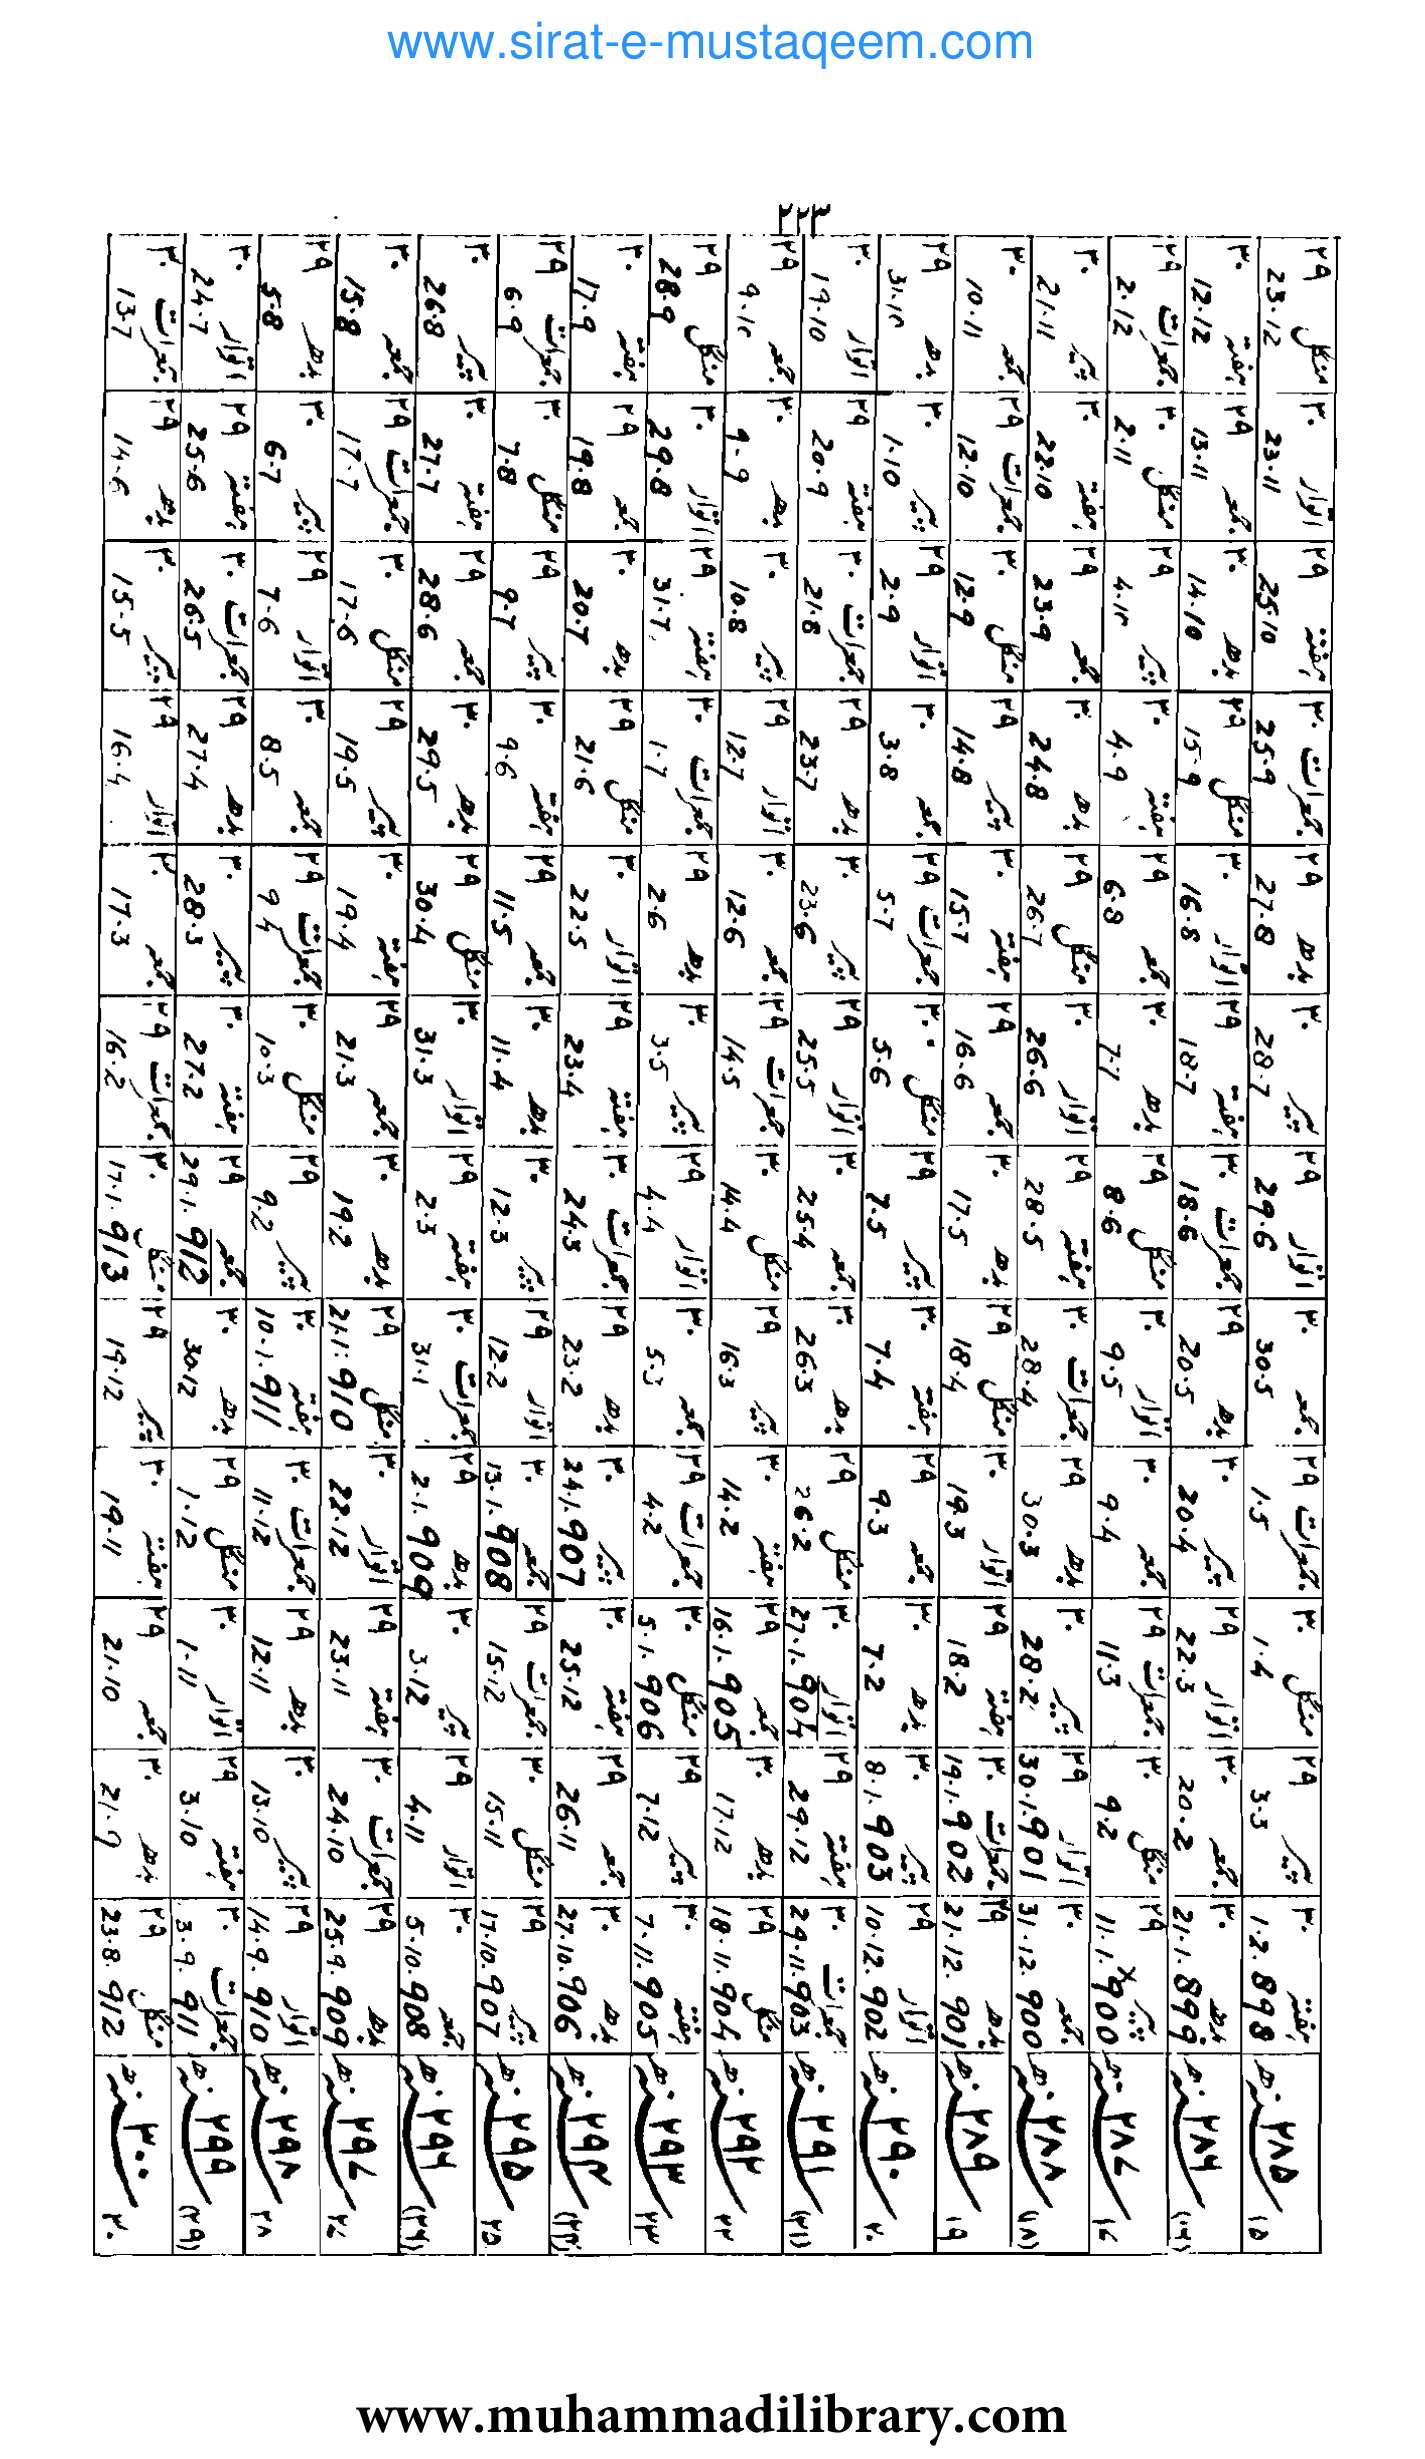 www.sirat-e-mustaqeem.com
۲۲۳
۱۵ ۲۸۵ھ ہفتہ ۳۰ 1.2.898 پیر ۲۹ 3.3 منگل ۳۰ 1.4 جمعرات ۲۹ 1.5 جمعہ ۳۰ 30.5 اتوار ۲۹ 29.6 پیر ۳۰ 28.7 بدھ ۲۹ 27.8 جمعرات ۳۰ 25.9 ہفتہ ۲۹ 25.10 اتوار ۳۰ 23.11 منگل ۲۹ 23.12
(۱۶) ۲۸۶ھ بدھ ۳۰ 21.1.899 جمعہ ۳۰ 20.2 اتوار ۲۹ 22.3 پیر ۳۰ 20.4 بدھ ۲۹ 20.5 جمعرات ۳۰ 18.6 ہفتہ ۲۹ 18.7 اتوار ۳۰ 16.8 منگل ۲۹ 15.9 بدھ ۳۰ 14.10 جمعہ ۲۹ 13.11 ہفتہ ۳۰ 12.12
۱۷ ۲۸۷ھ پیر ۲۹ 11.1.900 منگل ۳۰ 9.2 جمعرات ۲۹ 11.3 جمعہ ۳۰ 9.4 اتوار ۳۰ 9.5 منگل ۲۹ 8.6 بدھ ۳۰ 7.7 جمعہ ۲۹ 6.8 ہفتہ ۳۰ 4.9 پیر ۲۹ 4.10 منگل ۳۰ 2.11 جمعرات ۲۹ 2.12
(۱۸) ۲۸۸ھ جمعہ ۳۰ 31.12.900 اتوار ۲۹ 30.1.901 پیر ۳۰ 28.2 بدھ ۲۹ 30.3 جمعرات ۳۰ 28.4 ہفتہ ۲۹ 28.5 اتوار ۳۰ 26.6 منگل ۲۹ 26.7 بدھ ۳۰ 24.8 جمعہ ۲۹ 23.9 ہفتہ ۳۰ 22.10 پیر ۳۰ 21.11
۱۹ ۲۸۹ھ بدھ ۲۹ 21.12.901 جمعرات ۳۰ 19.1.902 ہفتہ ۲۹ 18.2 اتوار ۳۰ 19.3 منگل ۲۹ 18.4 بدھ ۳۰ 17.5 جمعہ ۳۰ 16.6 ہفتہ ۳۰ 15.7 پیر ۲۹ 14.8 منگل ۳۰ 12.9 جمعرات ۲۹ 12.10 جمعہ ۳۰ 10.11
۲۰ ۲۹۰ھ اتوار ۲۹ 10.12.902 پیر ۳۰ 8.1.903 بدھ ۳۰ 7.2 جمعہ ۲۹ 9.3 ہفتہ ۳۰ 7.4 پیر ۲۹ 7.5 منگل ۳۰ 5.6 جمعرات ۲۹ 5.7 جمعہ ۳۰ 3.8 اتوار ۲۹ 2.9 پیر ۳۰ 1.10 بدھ ۲۹ 31.10
(۲۱) ۲۹۱ھ جمعرات ۳۰ 29.11.903 ہفتہ ۲۹ 29.12 اتوار ۳۰ 27.1.904 منگل ۲۹ 26.2 بدھ ۳۰ 26.3 جمعہ ۳۰ 25.4 اتوار ۲۹ 25.5 پیر ۳۰ 23.6 بدھ ۲۹ 23.7 جمعرات ۳۰ 21.8 ہفتہ ۲۹ 20.9 اتوار ۳۰ 19.10
۲۲ ۲۹۲ھ منگل ۲۹ 18.11.904 بدھ ۳۰ 17.12 جمعہ ۲۹ 16.1.905 ہفتہ ۳۰ 14.2 پیر ۲۹ 16.3 منگل ۳۰ 14.4 جمعرات ۲۹ 14.5 جمعہ ۳۰ 12.6 اتوار ۲۹ 12.7 پیر ۳۰ 10.8 بدھ ۳۰ 9.9 جمعہ ۲۹ 9.10
۲۳ ۲۹۳ھ ہفتہ ۳۰ 7.11.905 پیر ۲۹ 7.12 منگل ۳۰ 5.1.906 جمعرات ۲۹ 4.2 جمعہ ۳۰ 5.3 اتوار ۲۹ 4.4 پیر ۳۰ 3.5 بدھ ۲۹ 2.6 جمعرات ۳۰ 1.7 ہفتہ ۲۹ 31.7 اتوار ۳۰ 29.8 منگل ۲۹ 28.9
(۲۴) ۲۹۴ھ بدھ ۳۰ 27.10.906 جمعہ ۲۹ 26.11 ہفتہ ۳۰ 25.12 پیر ۳۰ 24.1.907 بدھ ۲۹ 23.2 جمعرات ۳۰ 24.3 ہفتہ ۲۹ 23.4 اتوار ۳۰ 22.5 منگل ۲۹ 21.6 بدھ ۳۰ 20.7 جمعہ ۲۹ 19.8 ہفتہ ۳۰ 17.9
۲۵ ۲۹۵ھ پیر ۲۹ 17.10.907 منگل ۳۰ 15.11 جمعرات ۲۹ 15.12 جمعہ ۳۰ 13.1.908 اتوار ۲۹ 12.2 پیر ۳۰ 12.3 بدھ ۳۰ 11.4 جمعہ ۲۹ 11.5 ہفتہ ۳۰ 9.6 پیر ۲۹ 9.7 منگل ۳۰ 7.8 جمعرات ۲۹ 6.9
(۲۶) ۲۹۶ھ جمعہ ۳۰ 5.10.908 اتوار ۲۹ 4.11 پیر ۳۰ 3.12 بدھ ۲۹ 2.1.909 جمعرات ۳۰ 31.1 ہفتہ ۲۹ 2.3 اتوار ۳۰ 31.3 منگل ۲۹ 30.4 بدھ ۳۰ 29.5 جمعہ ۲۹ 28.6 ہفتہ ۳۰ 27.7 پیر ۳۰ 26.8
۲۷ ۲۹۷ھ بدھ ۲۹ 25.9.909 جمعرات ۳۰ 24.10 ہفتہ ۲۹ 23.11 اتوار ۳۰ 22.12 منگل ۲۹ 21.1.910 بدھ ۳۰ 19.2 جمعہ ۲۹ 21.3 ہفتہ ۳۰ 19.4 پیر ۲۹ 19.5 منگل ۳۰ 17.6 جمعرات ۲۹ 17.7 جمعہ ۳۰ 15.8
۲۸ ۲۹۸ھ اتوار ۲۹ 14.9.910 پیر ۳۰ 13.10 بدھ ۲۹ 12.11 جمعرات ۳۰ 11.12 ہفتہ ۳۰ 10.1.911 پیر ۲۹ 9.2 منگل ۳۰ 10.3 جمعرات ۲۹ 9.4 جمعہ ۳۰ 8.5 اتوار ۲۹ 7.6 پیر ۳۰ 6.7 بدھ ۲۹ 5.8
(۲۹) ۲۹۹ھ جمعرات ۳۰ 3.9.911 ہفتہ ۲۹ 3.10 اتوار ۳۰ 1.11 منگل ۲۹ 1.12 بدھ ۳۰ 30.12 جمعہ ۲۹ 29.1.912 ہفتہ ۳۰ 27.2 پیر ۳۰ 28.3 بدھ ۲۹ 27.4 جمعرات ۳۰ 26.5 ہفتہ ۲۹ 25.6 اتوار ۳۰ 24.7
۳۰ ۳۰۰ھ منگل ۲۹ 23.8.912 بدھ ۳۰ 21.9 جمعہ ۲۹ 21.10 ہفتہ ۳۰ 19.11 پیر ۲۹ 19.12 منگل ۳۰ 17.1.913 جمعرات ۲۹ 16.2 جمعہ ۳۰ 17.3 اتوار ۲۹ 16.4 پیر ۳۰ 15.5 بدھ ۲۹ 14.6 جمعرات ۳۰ 13.7
www.muhammadilibrary.com